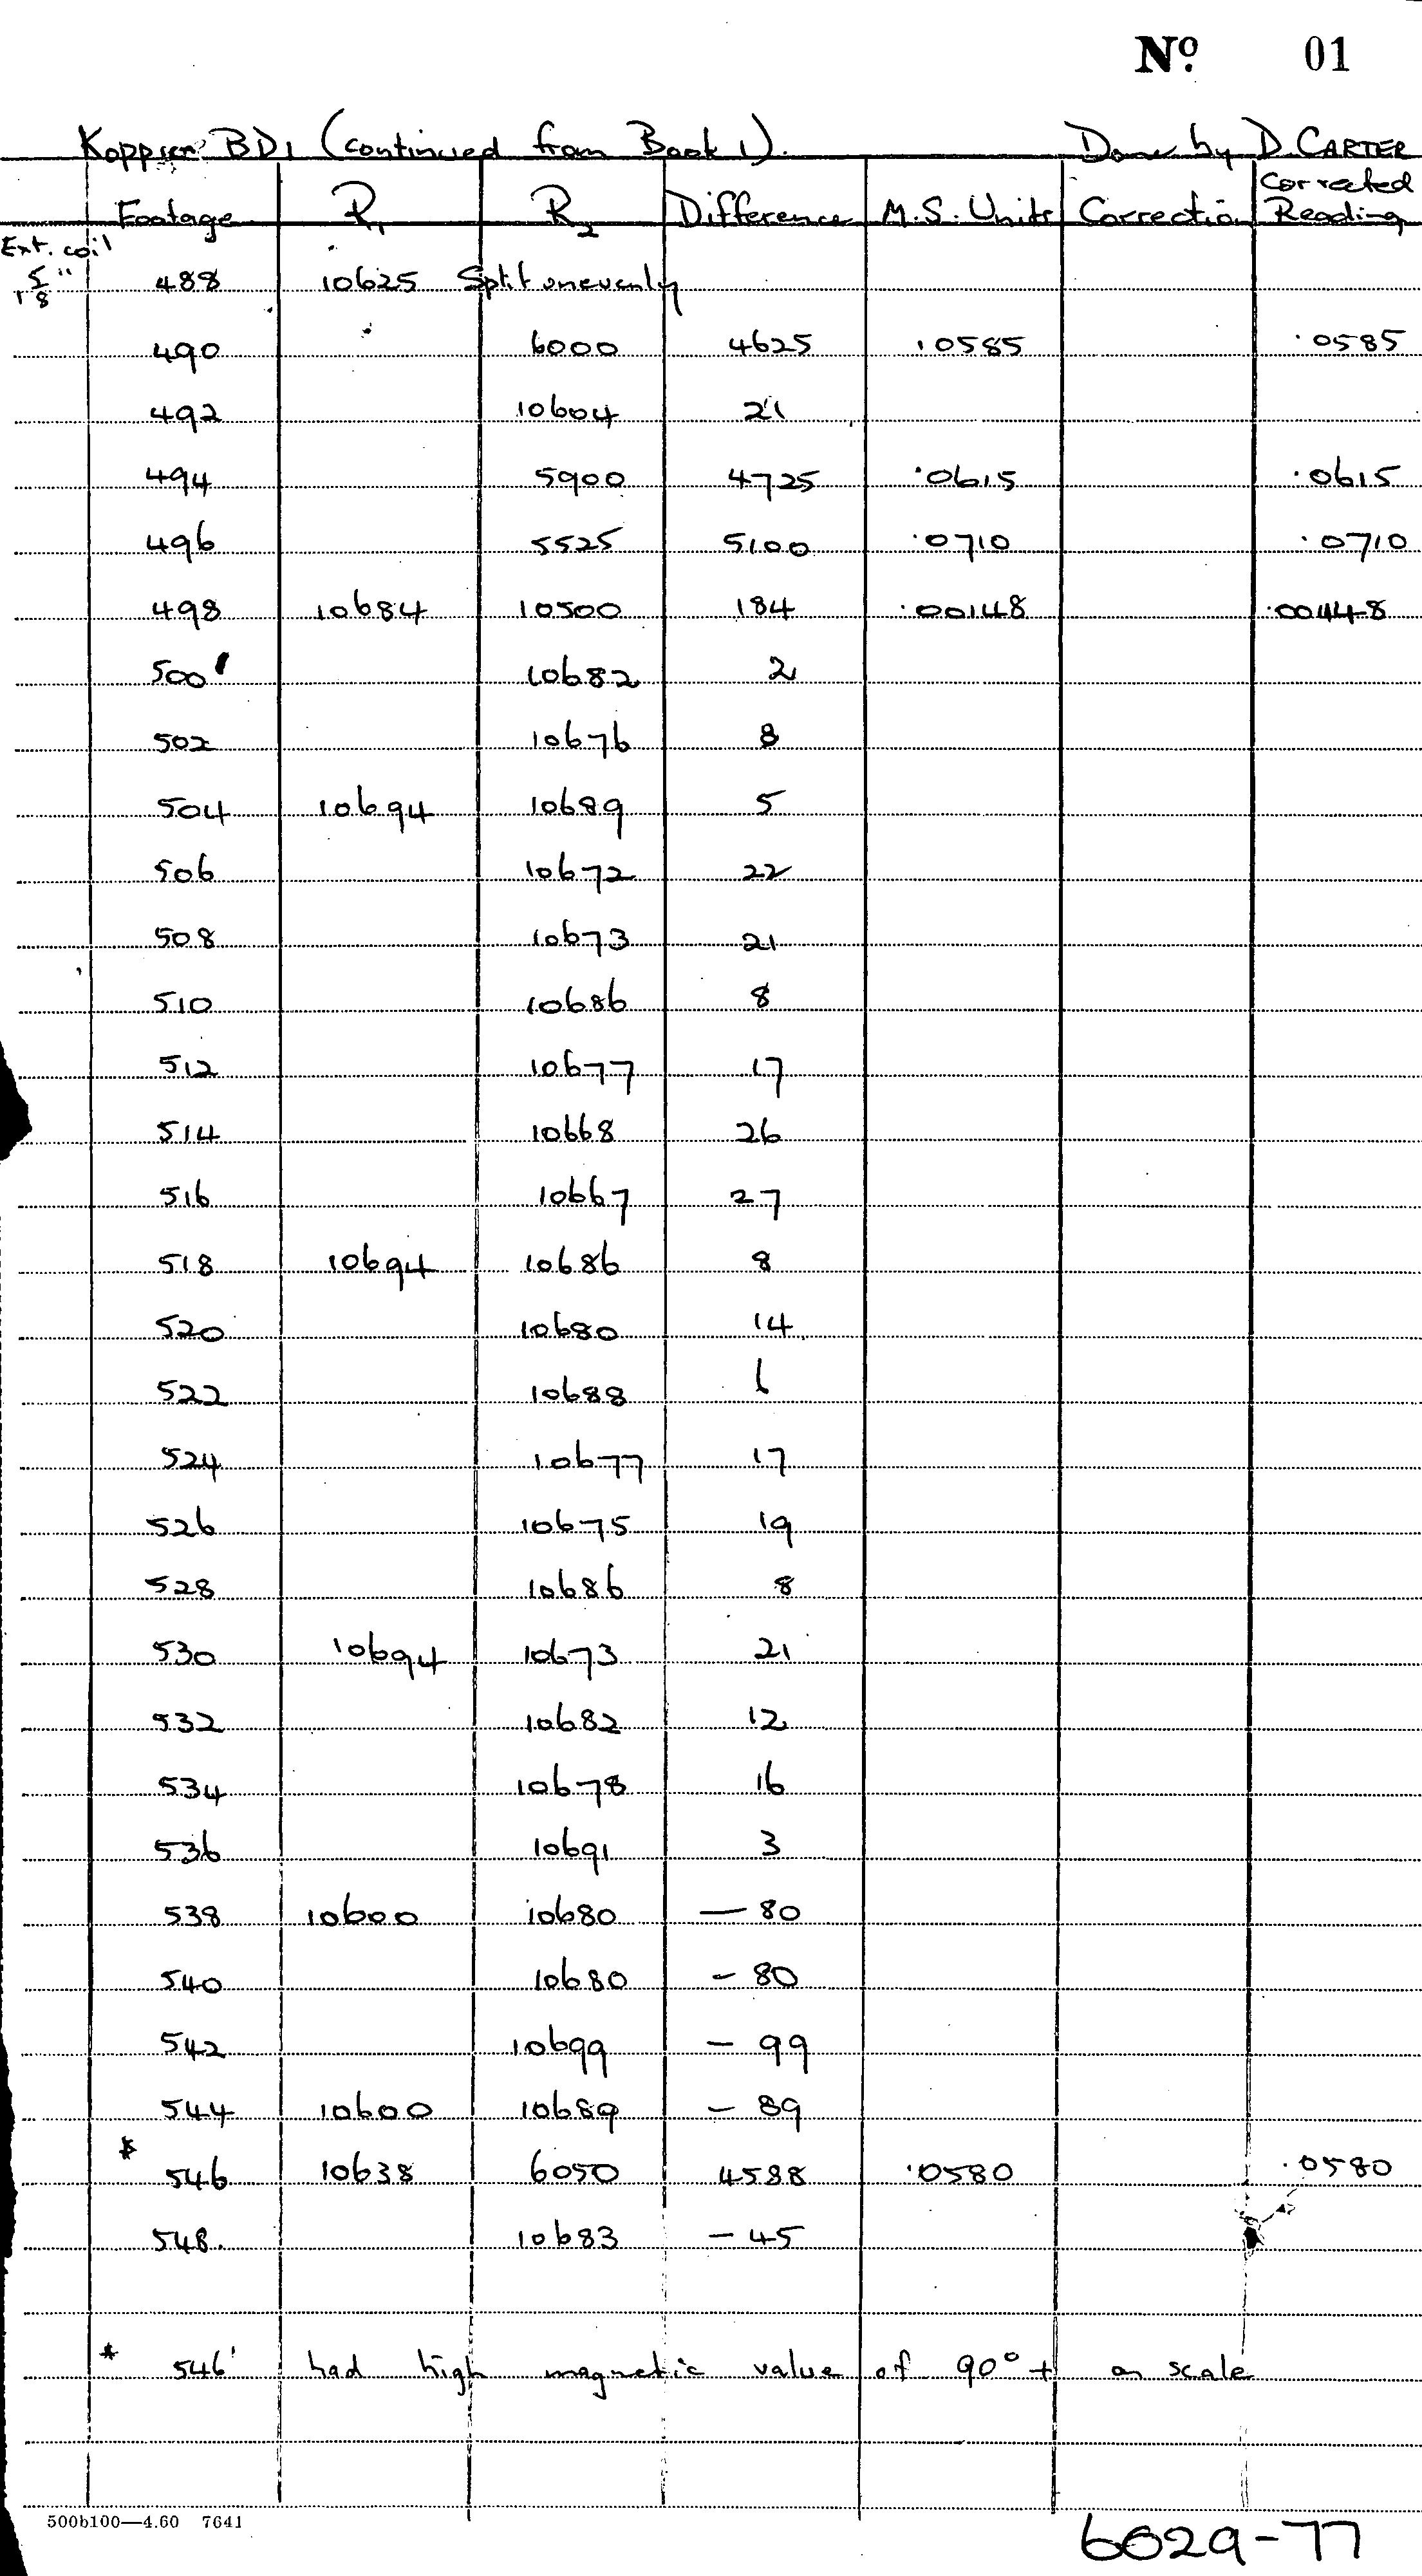 Nº 01
Koppio BD1 (continued from Book 1). Done by D. CARTER
Footage R1 R2 Difference M.S. Units Correction Corrected Reading
Ext. coil
1 5/8" 488 10625 Split unevenly
490 6000 4625 .0585 .0585
492 10604 21
494 5900 4725 .0615 .0615
496 5525 5100 .0710 .0710
498 10684 10500 184 .00148 .00148
500' 10682 2
502 10676 8
504 10694 10689 5
506 10672 22
508 10673 21
510 10686 8
512 10677 17
514 10668 26
516 10667 27
518 10694 10686 8
520 10680 14
522 10688 6
524 10677 17
526 10675 19
528 10686 8
530 10694 10673 21
532 10682 12
534 10678 16
536 10691 3
538 10600 10680 — 80
540 10680 - 80
542 10699 - 99
544 10600 10689 - 89
* 546 10638 6050 4588 .0580 .0580
548. 10683 - 45
* 546' had high magnetic value of 90°+ on scale
500b100—4.60 7641
6029-77